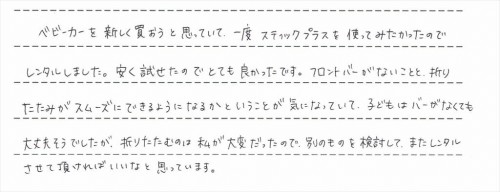 ベビーカーを新しく買おうと思っていて、一度スティックプラスを使ってみたかったので
レンタルしました。安く試せたのでとても良かったです。フロントバーがないことと、折り
たたみがスムーズにできるようになるかということが気になっていて、子どもはバーがなくても
大丈夫そうでしたが、折りたたむのは私が大変だったので、別のものを検討して、またレンタル
させて頂ければいいなと思っています。